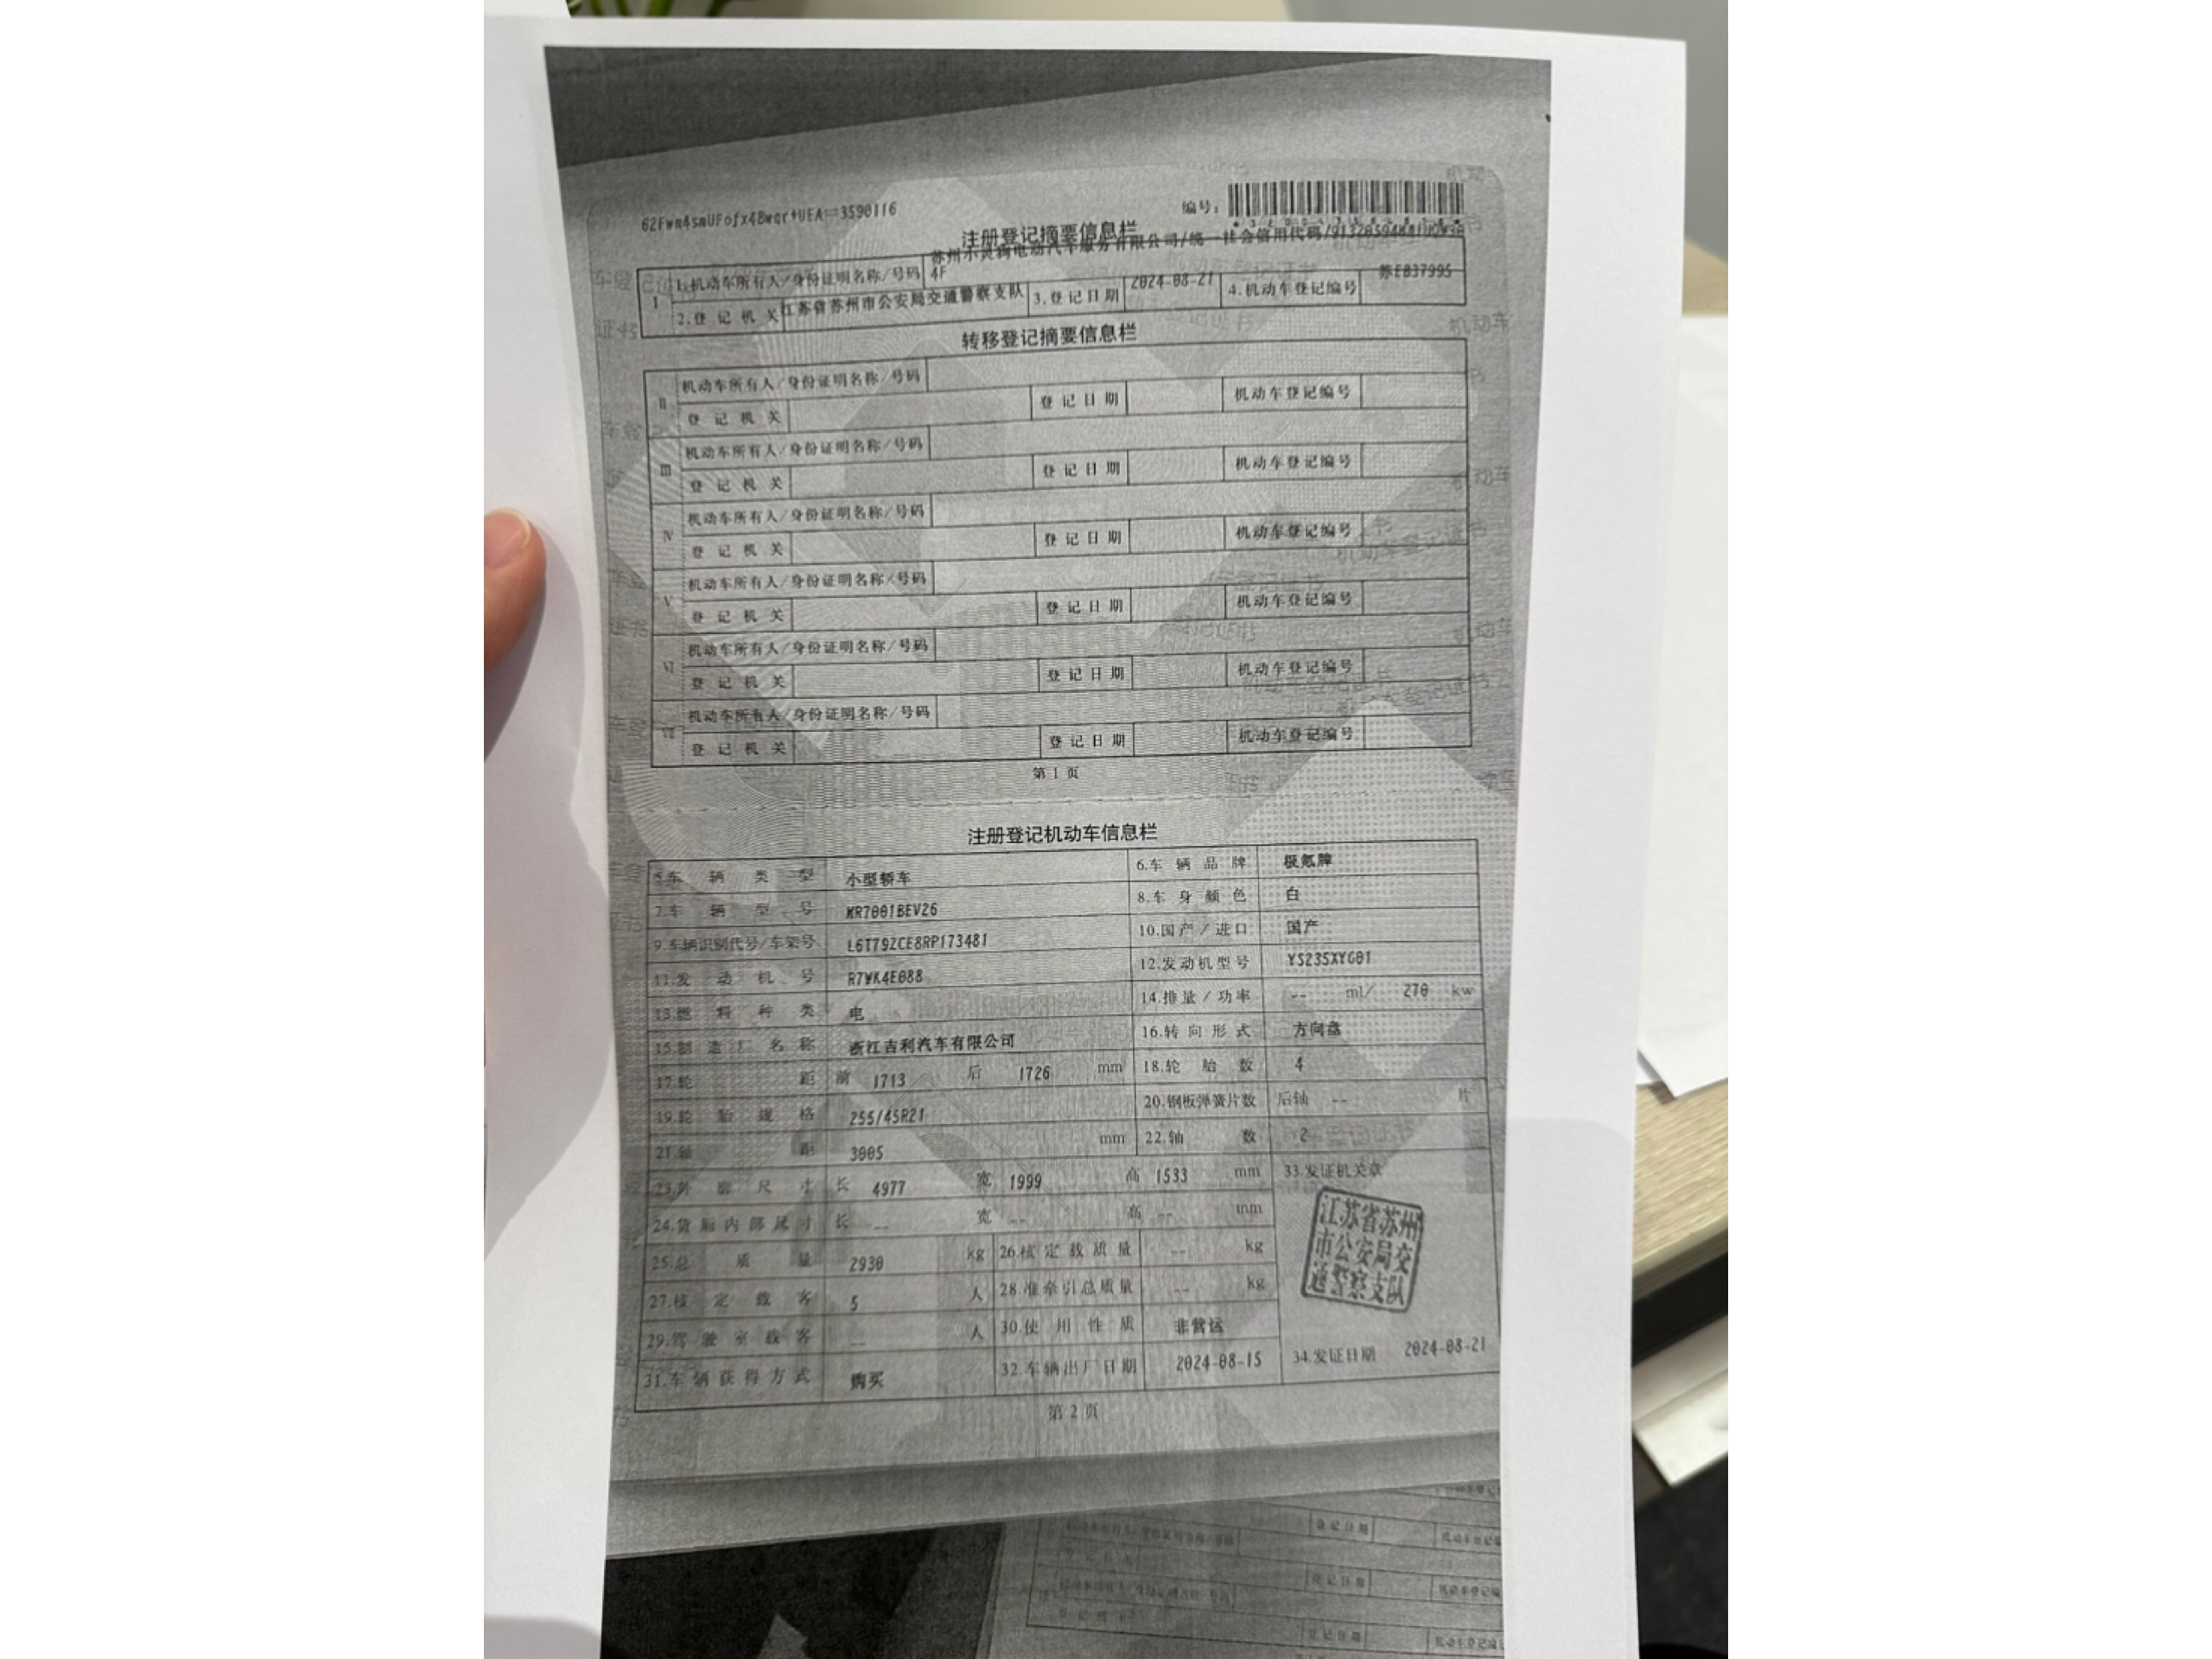 62Fwm4smUFofx4Bwqr+UEA==3590116
编号:
注册登记摘要信息栏
I 1.机动车所有人/身份证明名称/号码 苏州小灵狗电动汽车服务有限公司/统一社会信用代码/
4F
2.登记机关 江苏省苏州市公安局交通警察支队 3.登记日期 2024-08-21 4.机动车登记编号
转移登记摘要信息栏
II 机动车所有人/身份证明名称/号码
登记机关 登记日期 机动车登记编号
III 机动车所有人/身份证明名称/号码
登记机关 登记日期 机动车登记编号
IV 机动车所有人/身份证明名称/号码
登记机关 登记日期 机动车登记编号
V 机动车所有人/身份证明名称/号码
登记机关 登记日期 机动车登记编号
VI 机动车所有人/身份证明名称/号码
登记机关 登记日期 机动车登记编号
VII 机动车所有人/身份证明名称/号码
登记机关 登记日期 机动车登记编号
第 1 页
注册登记机动车信息栏
5.车辆类型 小型轿车 6.车辆品牌 极氪牌
7.车辆型号 MR7001BEV26 8.车身颜色 白
9.车辆识别代号/车架号 L6T79ZCE8RP173481 10.国产/进口 国产
11.发动机号 R7WK4E088 12.发动机型号 YS235XYG01
13.燃料种类 电 14.排量/功率 -- ml/ 270 kw
15.制造厂名称 浙江吉利汽车有限公司 16.转向形式 方向盘
17.轮距 前 1713 后 1726 mm 18.轮胎数 4
19.轮胎规格 255/45R21 20.钢板弹簧片数 后轴 -- 片
21.轴距 3005 mm 22.轴数 2
23.外廓尺寸 长 4977 宽 1999 高 1533 mm 33.发证机关章
24.货厢内部尺寸 长 -- 宽 -- 高 -- mm
江苏省苏州
市公安局交
通警察支队
25.总质量 2930 kg 26.核定载质量 -- kg
27.核定载客 5 人 28.准牵引总质量 -- kg
29.驾驶室载客 -- 人 30.使用性质 非营运
31.车辆获得方式 购买 32.车辆出厂日期 2024-08-15 34.发证日期 2024-08-21
第 2 页